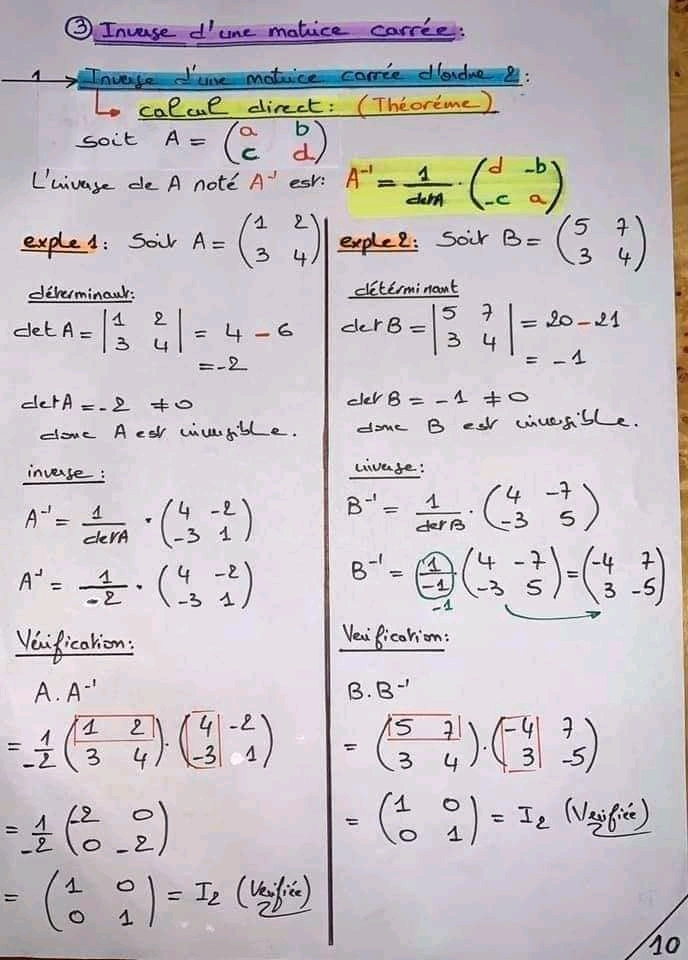 ③ Inverse d'une matrice carrée:
1 → Inverse d'une matrice carrée d'ordre 2:
↳ calcul direct: (Théoréme)
soit A = (a b / c d)
L'inverse de A noté A⁻¹ est: A⁻¹ = 1/detA · (d -b / -c a)
exple 1: Soit A = (1 2 / 3 4)
déterminant:
det A = |1 2 / 3 4| = 4 - 6
= -2
det A = -2 ≠ 0
donc A est inversible.
inverse:
A⁻¹ = 1/detA · (4 -2 / -3 1)
A⁻¹ = 1/-2 · (4 -2 / -3 1)
Vérification:
A.A⁻¹
= 1/-2 (1 2 / 3 4) · (4 -2 / -3 1)
= 1/-2 (-2 0 / 0 -2)
= (1 0 / 0 1) = I₂ (Verifiée)
exple 2: Soit B = (5 7 / 3 4)
détérminant
det B = |5 7 / 3 4| = 20 - 21
= -1
det B = -1 ≠ 0
donc B est inversible.
inverse:
B⁻¹ = 1/detB · (4 -7 / -3 5)
B⁻¹ = 1/-1 (4 -7 / -3 5) = (-4 7 / 3 -5)
-1
Verification:
B.B⁻¹
= (5 7 / 3 4) · (-4 7 / 3 -5)
= (1 0 / 0 1) = I₂ (Verifiée)
10